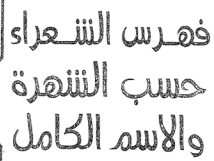 فهرس الشعراء
حسب الشهرة
والاسم الكامل